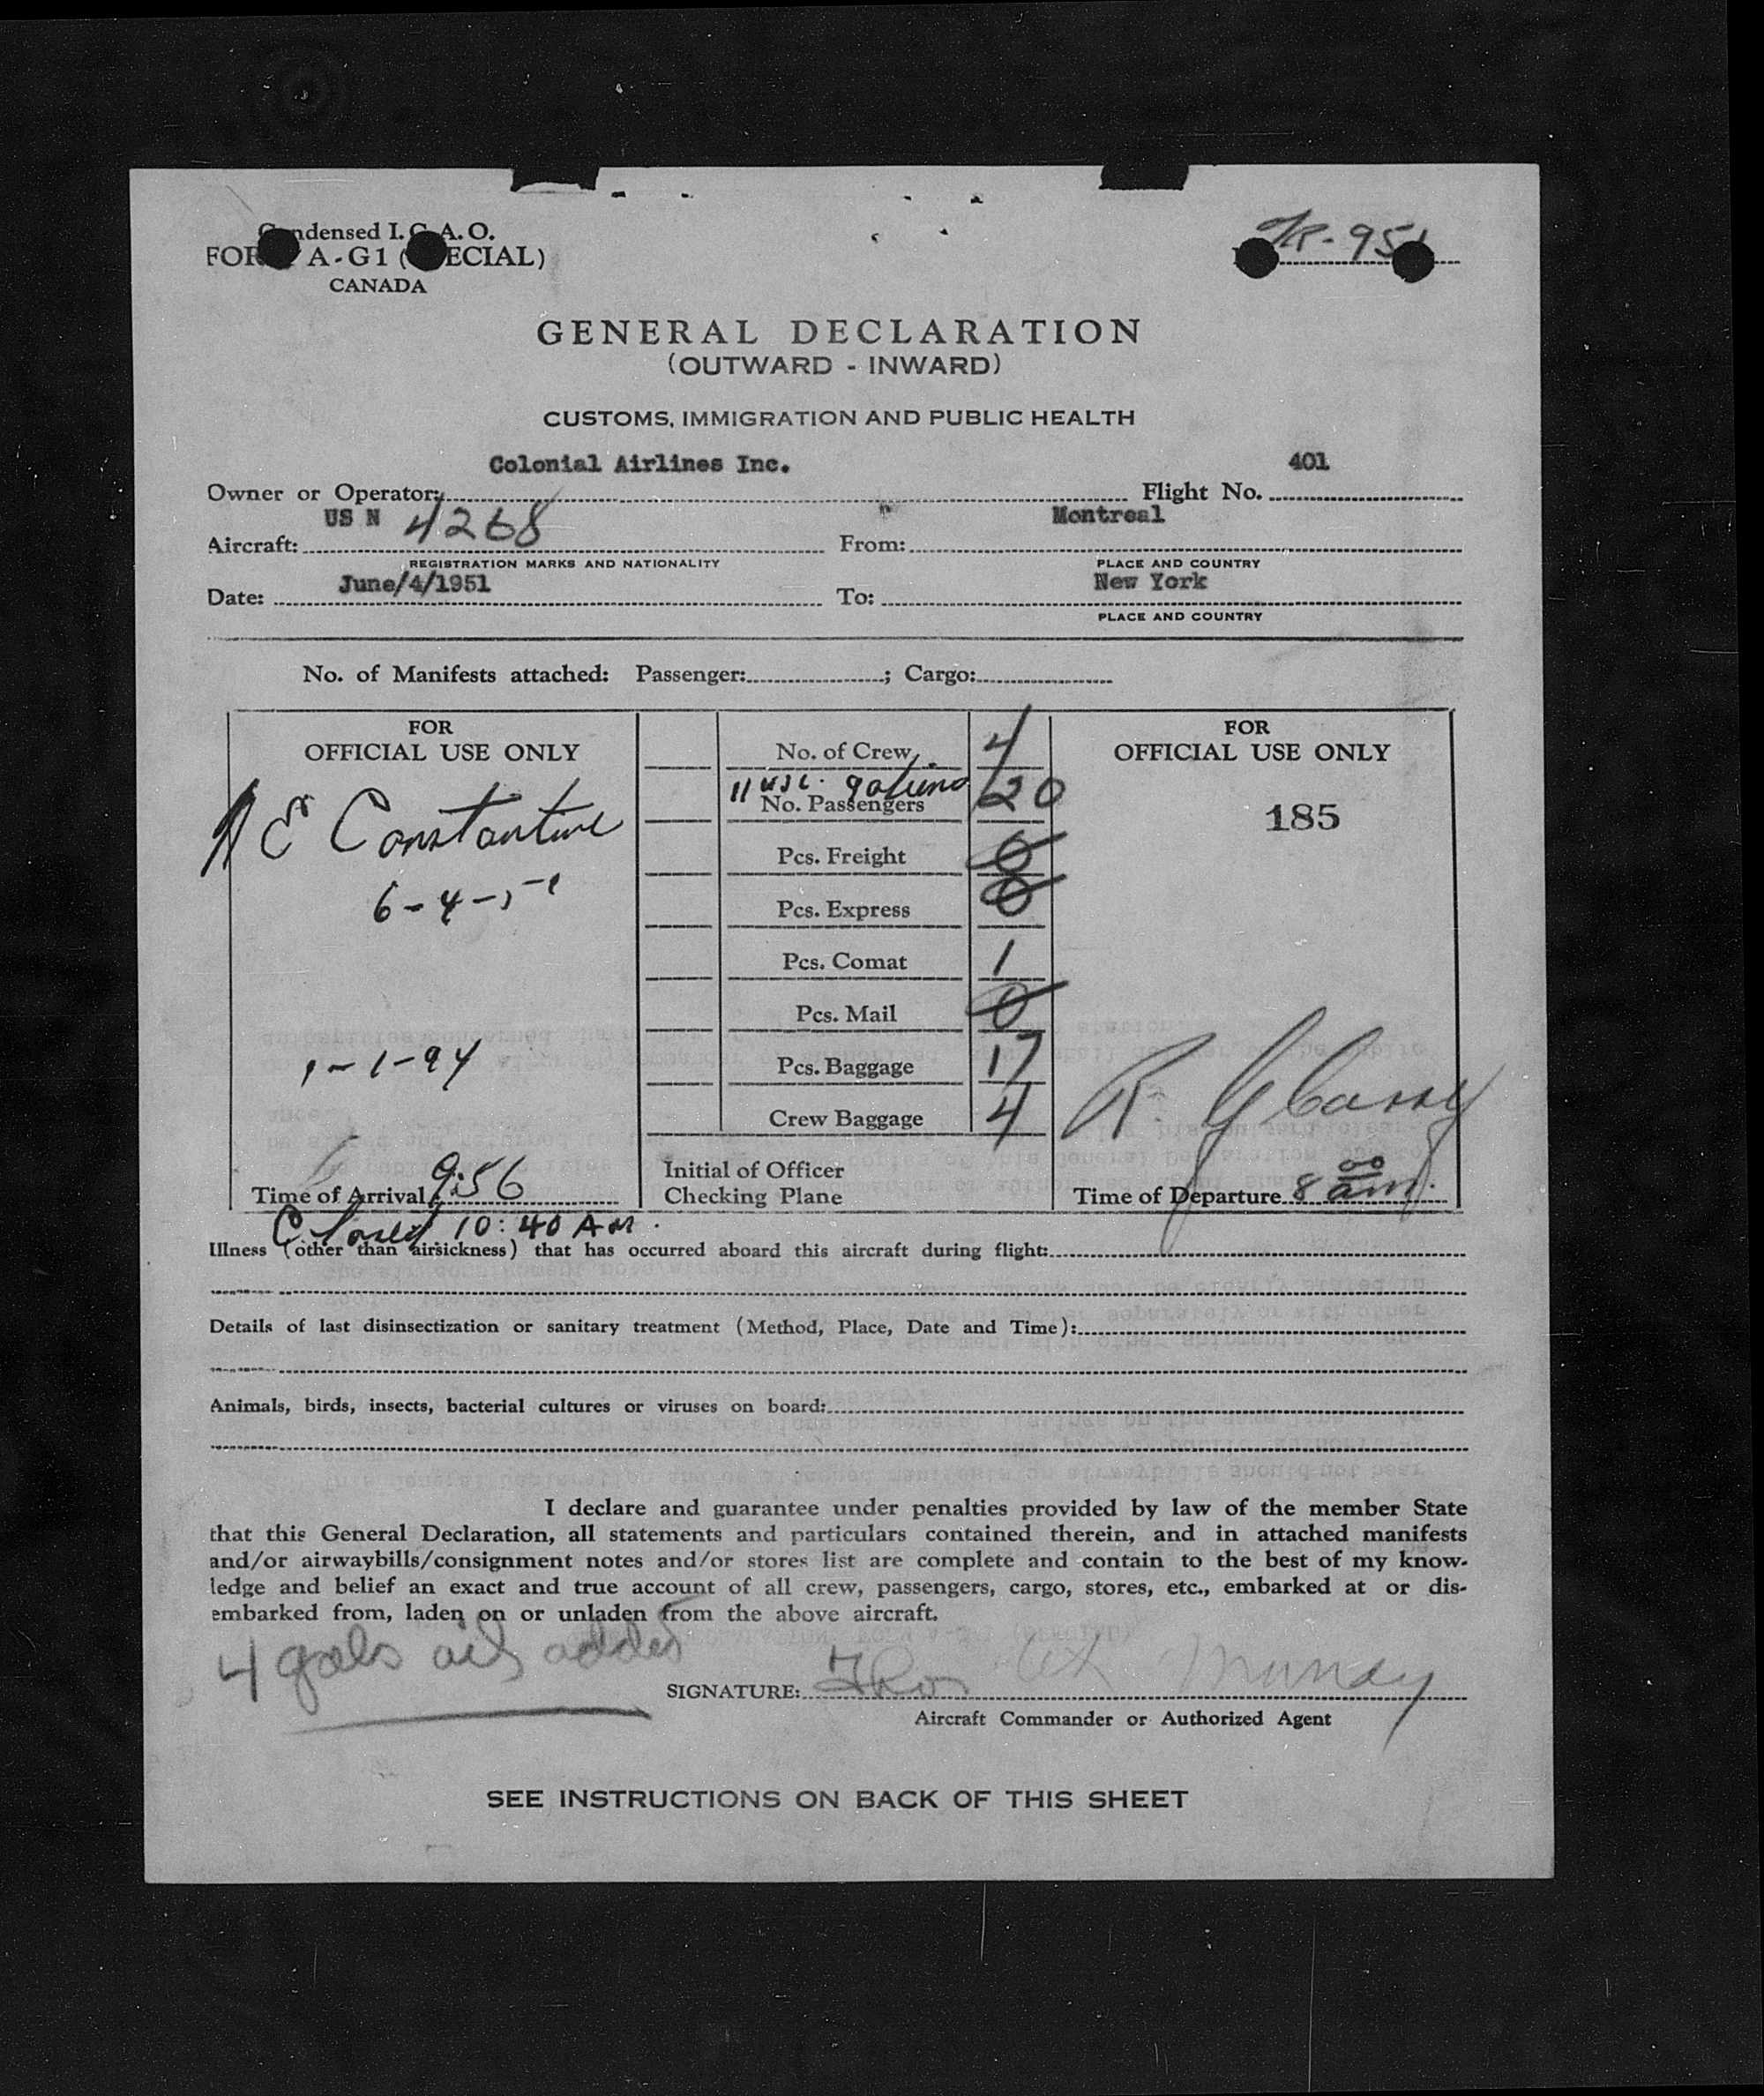 Condensed I.C.A.O.
FORM A-G1 (SPECIAL)
CANADA
-951
GENERAL DECLARATION
(OUTWARD - INWARD)
CUSTOMS, IMMIGRATION AND PUBLIC HEALTH
Owner or Operator: Colonial Airlines Inc. Flight No. 401
Aircraft: US N 4268 From: Montreal
REGISTRATION MARKS AND NATIONALITY PLACE AND COUNTRY
Date: June/4/1951 To: New York
PLACE AND COUNTRY
No. of Manifests attached: Passenger: ; Cargo:
FOR
OFFICIAL USE ONLY
E Constantine
6-4-51
1-1-94
Time of Arrival 9:56
Closed 10:40 AM.
No. of Crew 4
11 usc.
No. Passengers 20
Pcs. Freight 0
Pcs. Express 0
Pcs. Comat 1
Pcs. Mail 0
Pcs. Baggage 17
Crew Baggage 4
Initial of Officer
Checking Plane
FOR
OFFICIAL USE ONLY
185
R.
Time of Departure 8 00 am.
Illness (other than airsickness) that has occurred aboard this aircraft during flight:
Details of last disinsectization or sanitary treatment (Method, Place, Date and Time):
Animals, birds, insects, bacterial cultures or viruses on board:
I declare and guarantee under penalties provided by law of the member State
that this General Declaration, all statements and particulars contained therein, and in attached manifests
and/or airwaybills/consignment notes and/or stores list are complete and contain to the best of my know-
ledge and belief an exact and true account of all crew, passengers, cargo, stores, etc., embarked at or dis-
embarked from, laden on or unladen from the above aircraft.
4 gals oil added
SIGNATURE: Munday
Aircraft Commander or Authorized Agent
SEE INSTRUCTIONS ON BACK OF THIS SHEET